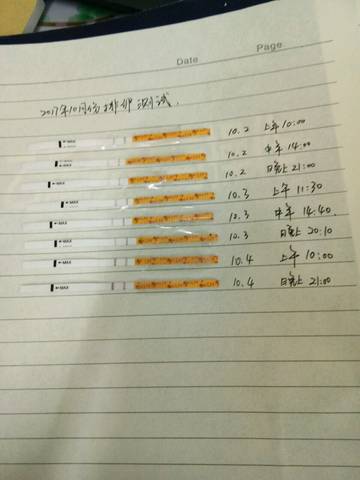 Date Page
2017年10月份排卵测试.
MAX 10.2 上午10:00
MAX 10.2 中午14:00
MAX 10.2 晚上21:00
MAX 10.3 上午11:30
MAX 10.3 中午14:40.
MAX 10.3 晚上20:10
MAX 10.4 上午10:00
MAX 10.4 晚上21:00